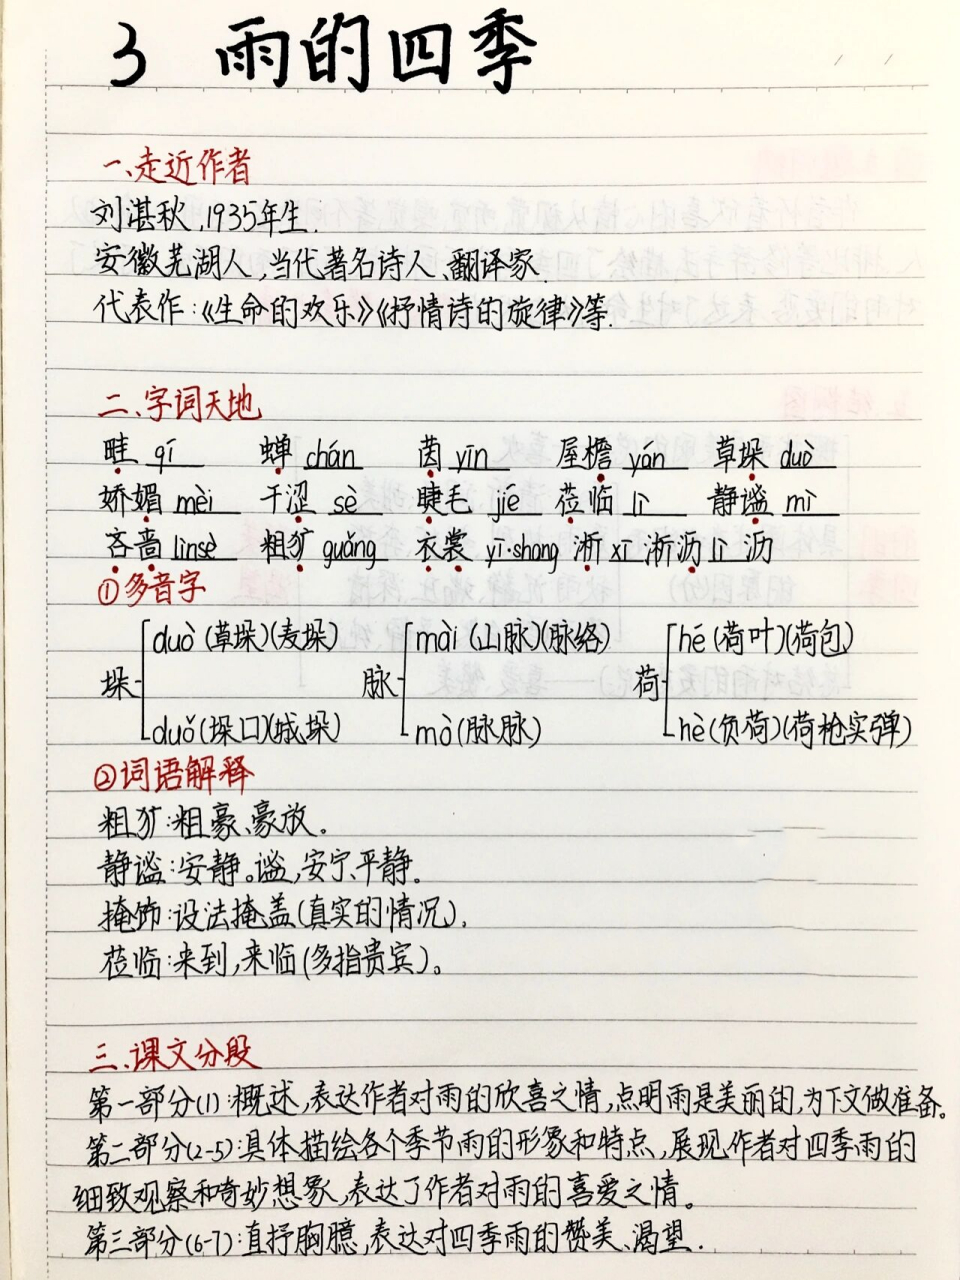 3 雨的四季
一、走近作者
刘湛秋,1935年生.
安徽芜湖人,当代著名诗人、翻译家.
代表作:《生命的欢乐》《抒情诗的旋律》等.
二、字词天地
畦 qí 蝉 chán 茵 yīn 屋檐 yán 草垛 duò
娇媚 mèi 干涩 sè 睫毛 jié 莅临 lì 静谧 mì
吝啬 lìnsè 粗犷 guǎng 衣裳 yī·shang 淅 xī 淅沥 lì 沥
①多音字
垛 duò (草垛)(麦垛) duǒ(垛口)(城垛)
脉 mài (山脉)(脉络) mò(脉脉)
荷 hé (荷叶)(荷包) hè(负荷)(荷枪实弹)
②词语解释
粗犷:粗豪、豪放。
静谧:安静。谧,安宁、平静。
掩饰:设法掩盖(真实的情况)。
莅临:来到,来临(多指贵宾)。
三、课文分段
第一部分(1):概述,表达作者对雨的欣喜之情,点明雨是美丽的,为下文做准备。
第二部分(2-5):具体描绘各个季节雨的形象和特点,展现作者对四季雨的
细致观察和奇妙想象,表达了作者对雨的喜爱之情。
第三部分(6-7):直抒胸臆,表达对四季雨的赞美、渴望.